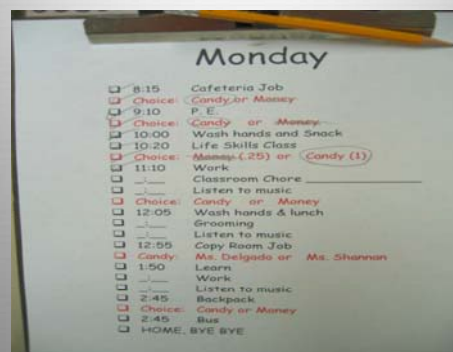 Monday
8:15 Cafeteria Job
Choice: Candy or Money
9:10 P. E.
Choice: Candy or Money
10:00 Wash hands and Snack
10:20 Life Skills Class
Choice: Money (.25) or Candy (1)
11:10 Work
__:__ Classroom Chore ____________
__:__ Listen to music
Choice: Candy or Money
12:05 Wash hands & lunch
__:__ Grooming
__:__ Listen to music
12:55 Copy Room Job
Candy: Ms. Delgado or Ms. Shannan
1:50 Learn
__:__ Work
__:__ Listen to music
2:45 Backpack
Choice: Candy or Money
2:45 Bus
HOME, BYE BYE